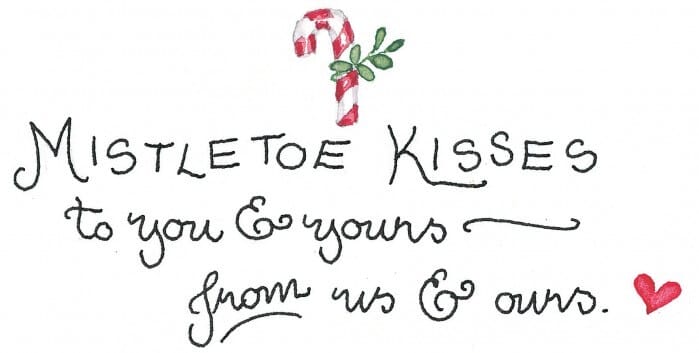 MISTLETOE KISSES
to you & yours
from us & ours.